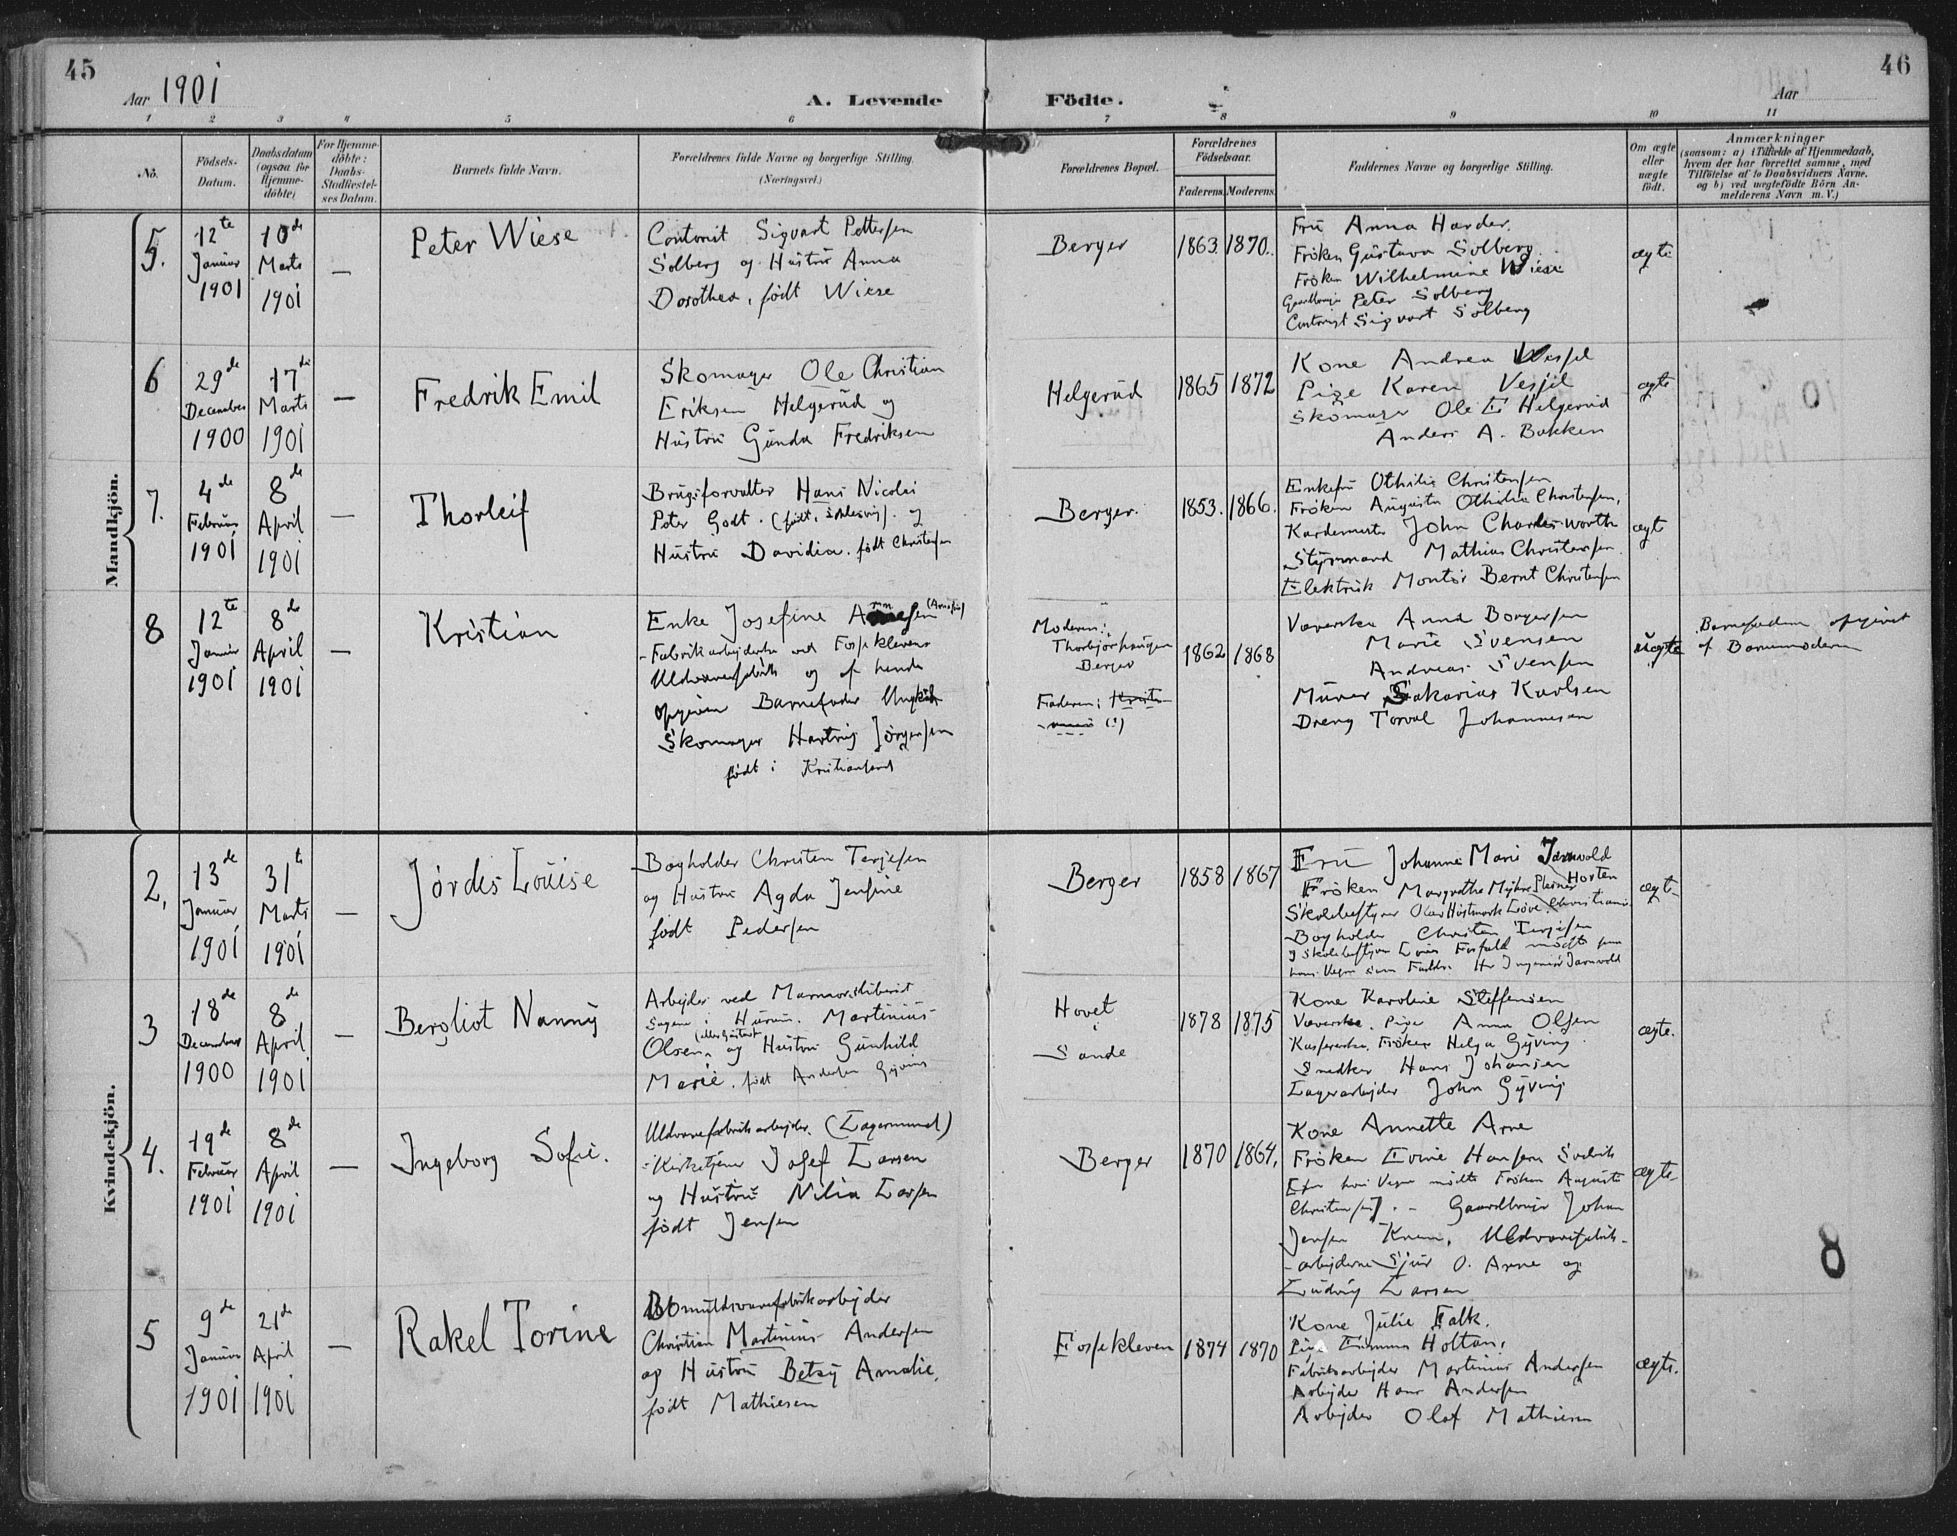 45
Aar 1901
A. Levende
Födte.
Aar
46
1 2 3 4 5 6 7 8 9 10 11
No.
Födsels-
Datum.
Daabsdatum
(ogsaa for
Hjemme-
döbte)
For Hjemme-
döbte:
Daabs-
Stadfæstel-
ses Datum.
Barnets fulde Navn.
Forældrenes fulde Navne og borgerlige Stilling.
(Næringsvei.)
Forældrenes Bopæl.
Forældrenes
Födselsaar.
Faderens.
Moderens.
Faddernes Navne og borgerlige Stilling.
Om ægte
eller
uægte
födt.
Anmærkninger
(saasom: a) i Tilfælde af Hjemmedaab,
hvem der har forrettet samme, med
Tilföielse af to Daabsvidners Navne.
og b) ved uægtefödte Börn An-
melderens Navn m. V.)
Mandkjön.
5.
12te
Januar
1901
10de
Marts
1901
—
Peter Wiese
Contorist Sigvart Pettersen
Solberg og Hustru Anna
Dorothea, født Wiese
Berger
1863
1870.
Fru Anna Harder.
Frøken Gustava Solberg
Frøken Wilhelmine Wiese
Gaardbruger Peter Solberg
Contorist Sigvart Solberg
ægte
6
29de
December
1900
17de
Marts
1901
—
Fredrik Emil
Skomager Ole Christian
Eriksen Helgerud og
Hustru Gunda Fredriksen
Helgerud
1865
1872
Kone Andrea Wessel
Pige Karen Vessel
Skomager Ole E Helgerud
Anders A. Bakken
ægte
7.
4de
Februar
1901
8de
April
1901
—
Thorleif
Brugsforvalter Hans Nicolai
Peter Godt. (født i Schlesvig). og
Hustru Davidia. født Christensen
Berger.
1853.
1866.
Enkefru Othilie Christensen
Frøken Augusta Othilie Christensen,
Kardemester John Charlesworth
Styrmand Mathias Christensen
Elektrisk Montør Bernt Christensen
ægte
8
12te
Januar
1901
8de
April
1901
—
Kristian
Enke Josefine
Fabrikarbejderske ved Fossekleven
Uldvarefabrik og af hende
opgiven Barnefader Ungkarl
Skomager Hartvig Jörgensen
født i Kristiansand
Moderen:
Thorbjörnhaugen
Berger
Faderen:
(?)
1862
1868
Væverske Anna Borgersen
Marie Svensen
Andreas Svensen
Murer Sakarias Karlsen
Dreng Torval Johannesen
uægte
Barnefaderen opgivet
af Barnemoderen
Kvindekjön.
2,
13de
Januar
1901
31te
Marts
1901
—
Jørdis Louise
Bogholder Christen Terjesen
og Hustru Agda Jensine
født Pedersen
Berger
1858
1867
Fru Johanne Marie Jarnvold
Horten
Frøken Margrethe Myhre
Skolebestyrer Olav Hustmark Love Christiania
Bogholder Christen Terjesen
hans Vegne som Fadder. Hr Ingeniør Jarnvold
ægte
3
18de
December
1900
8de
April
1901
—
Bergliot Nanny
Arbejder ved Marmorsliberiet
Sagene i Hurum. Martinius
Olsen, og Hustru Gunhild
Marie. født Andersen Gyving
Hovet
i
Sande
1878
1875
Kone Karoline Steffensen
Væverske. Pige Anna Olsen
Kassererske. Frøken Helga Gyving
Snedker Hans Johansen
Lagerarbejder John Gyving
ægte.
4.
19de
Februar
1901
8de
April
1901
—
Ingeborg Sofie.
Uldvarefabrikarbejder. (Lagermand)
Kirketjener Josef Larsen
og Hustru Nilia Larsen
født Jensen
Berger
1870
1864.
Kone Annette Arne
Frøken Hansen
hans Vegne mødte Frøken Augusta
Christensen). - Gaardbruger Johan
Jensen Uldvarefabrik-
arbejderne Sjur O. Arne og
Ludvig Larsen
ægte
5
9de
Januar
1901
21de
April
1901
—
Rakel Torine
Bomuldsvarefabrikarbejder
Christian Martinius Andersen
og Hustru Betsy Amalie,
født Mathiesen
Fossekleven
1874
1870
Kone Julie Falk.
Pige Emma Holtan.
Fabrikarbejder Martinius Andersen
Arbejder Hans Andersen
Arbejder Olaf Mathisen
ægte.